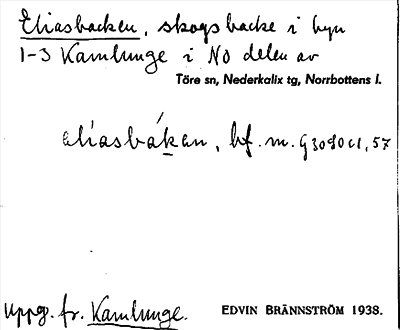 Eliasbacken, skogsbacke i byn
1-3 Kamlunge i NO delen av
Töre sn, Nederkalix tg, Norrbottens l.
eliasbákan, bf. m.
uppg. fr. Kamlunge.
EDVIN BRÄNNSTRÖM 1938.